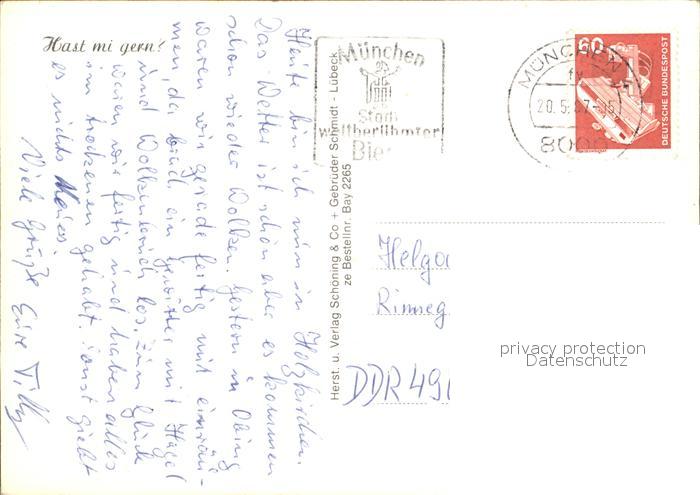 Hast mi gern?
Heute bin ich nun in Holzkirchen.
Das Wetter ist schön aber es kommen
schon wieder Wolken. Gestern in Obing
waren wir gerade fertig mit einräu-
men, da brach ein Gewitter mit Hagel
und Wolkenbruch los. Zum Glück
waren wir fertig und haben alles
im trockenen gehabt. Sonst giebt
es nichts Neues.
Viele Grüße Eure Tilly
Herst. u. Verlag Schöning & Co + Gebrüder Schmidt - Lübeck
ze Bestellnr. Bay 2265
München
Stadt
weltberühmter
Bie
MÜNCHEN
fy
20.5.87-15
8000
60
DEUTSCHE BUNDESPOST
Helga
Rinneg
DDR 49
privacy protection
Datenschutz